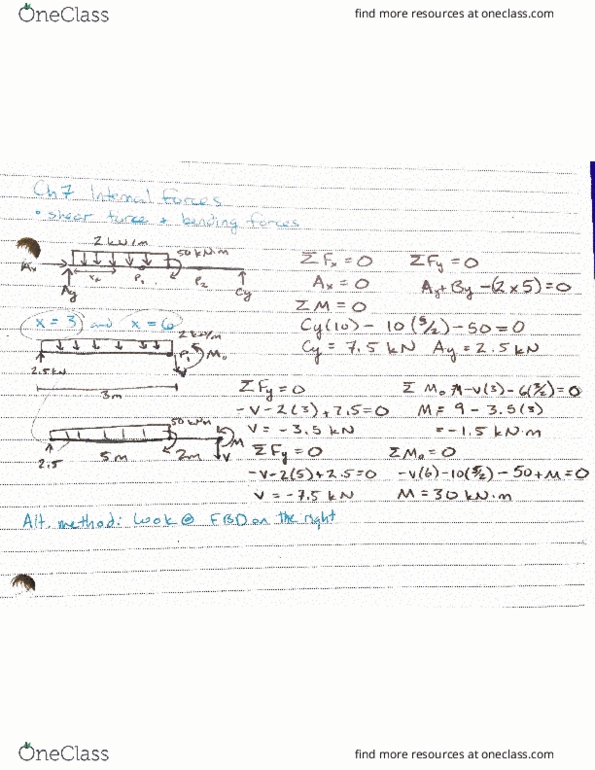 OneClass
find more resources at oneclass.com
Ch 7 Internal Forces
• shear force + bending forces
2 kN/m
50 kN·m
Ax
x₁
P₁
P₂
Ay
Cy
ΣFx = 0
ΣFy = 0
Ax = 0
Ay + By - (2 x 5) = 0
ΣM = 0
x = 3 and x = 6
Cy(10) - 10(5/2) - 50 = 0
2 kN/m
Cy = 7.5 kN Ay = 2.5 kN
P₁ M₀
2.5 kN
V
3m
ΣFy = 0
Σ M₀ M - V(3) - 6(3/2) = 0
-V - 2(3) + 2.5 = 0
M = 9 - 3.5(3)
V = -3.5 kN
= -1.5 kN·m
50 kN·m
M
V
2.5
5m
2m
ΣFy = 0
ΣMa = 0
-V - 2(5) + 2.5 = 0
-V(6) - 10(5/2) - 50 + M = 0
V = -7.5 kN
M = 30 kN·m
Alt. method: look @ FBD on the right
OneClass
find more resources at oneclass.com